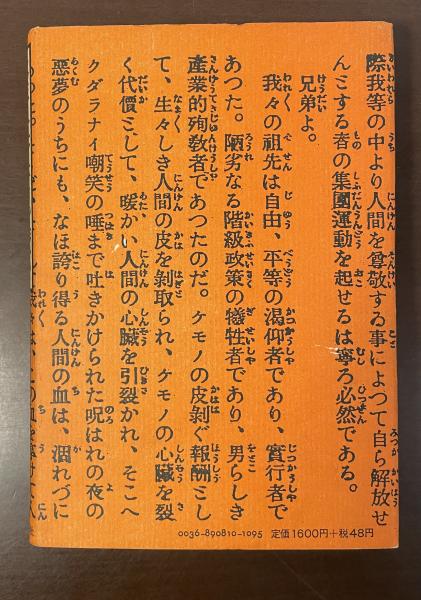 際我等の中より人間を尊敬する事によつて自ら解放せ
んとする者の集團運動を起せるは寧ろ必然である。
兄弟よ。
我々の祖先は自由、平等の渇仰者であり、實行者で
あつた。陋劣なる階級政策の犠牲者であり、男らしき
産業的殉教者であつたのだ。ケモノの皮剝ぐ報酬とし
て、生々しき人間の皮を剝取られ、ケモノの心臓を裂
く代價として、暖かい人間の心臓を引裂かれ、そこへ
クダラナイ嘲笑の唾まで吐きかけられた呪はれの夜の
惡夢のうちにも、なほ誇り得る人間の血は、涸れづに
0036-890810-1095 定価1600円+税48円